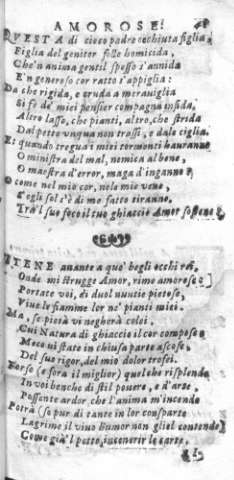 AMOROSE.
QVESTA di cieco padre occhiuta figlia,
Figlia del genitor fello homicida,
Che'n anima gentil spesso s'annida
E'n generoso cor ratto s'appiglia:
Da che rigida, e cruda a merauiglia
Si fè de' miei pensier compagna infida,
Altro lasso, che pianti, altro, che strida
Dal petto vnqua non trassi, e dale ciglia.
Et quando tregua i miei tormenti hauranno
O ministra del mal, nemica al bene,
O maestra d'error, maga d'inganno
O come nel mio cor, nele mie vene,
S'egli sol s'è di me fatto tiranno,
Trà'l suo foco il tuo ghiaccio Amor sostene?
ITENE auante a que' begli occhi rei,
Onde mi strugge Amor, rime amorose:
Portate voi, di duol nuntie pietose,
Viue le fiamme lor ne' pianti miei.
Ma, se pietà vi negherà colei,
Cui Natura di ghiaccio il cor compose
Meco vi state in chiusa parte ascose,
Del suo rigor, del mio dolor trofei.
Forse (e fora il miglior) quel che risplende
In voi benche di stil pouere, e d'arte,
Possente ardor che l'anima m'incende
Potrà (se pur di tante in lor consparte
Lagrime il viuo humor non gliel contende)
Come già'l petto, incenerir le carte.